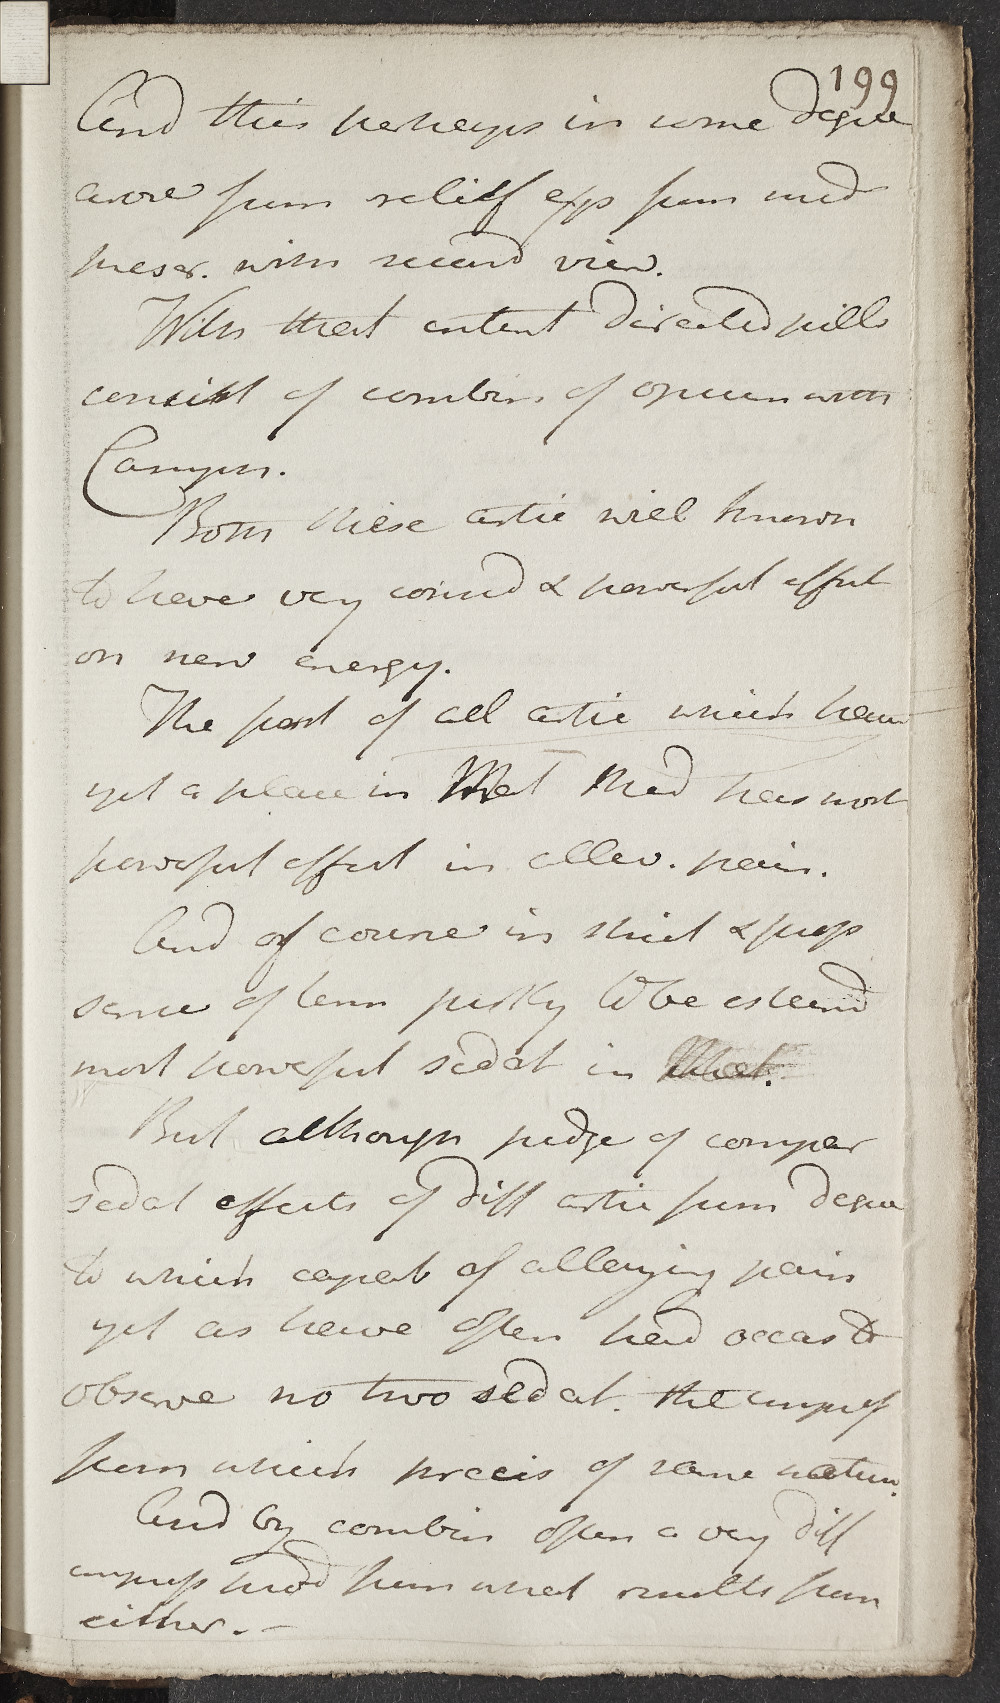 199
And this perhaps in some degree
arose from relief exp from med
prescr. with second view.
With that intent directed pills
consist of combin. of opium with
Camph.
Both these artic well known
to have very consid & powerful effect
on nerv energy.
The first of all artic which have
yet a place in Mat Med has most
powerful effect in allev. pain.
And of course in strict & prop
sense of term justly to be esteemd
most powerful sedat in Mat.
But although judge of compar
sedat effects of diff artic from degree
to which capab of allaying pain
yet as have often had occas to
observe no two sedat. the impress
from which precis of same nature.
And by combin often a very diff
impress prod from what results from
either. —